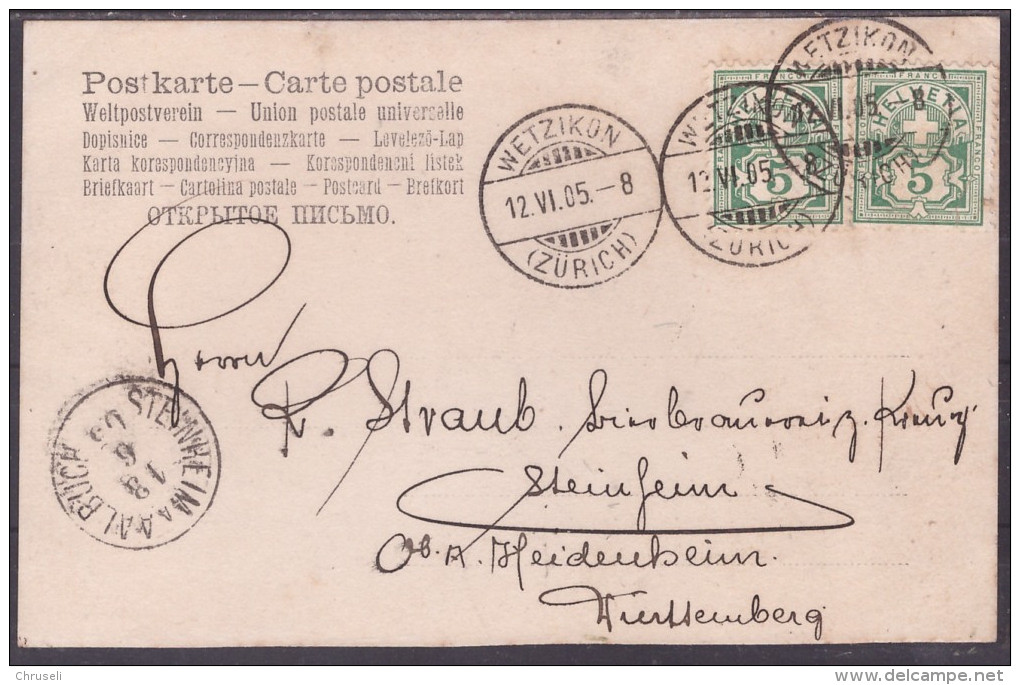 Postkarte — Carte postale
Weltpostverein — Union postale universelle
Dopisnice — Correspondenzkarte — Levelező-Lap
Karta korespondencyjna — Korespondencni listek
Briefkaart — Cartolina postale — Postcard — Brefkort
ОТКРЫТОЕ ПИСЬМО.
WETZIKON
12.VI.05.–8
(ZÜRICH)
WETZIKON
12.VI.05.–8
(ZÜRICH)
WETZIKON
VI.05.–8
FRANCO
HELVETIA
5
FRANCO
HELVETIA
5
Herrn
R. Straub, Bierbrauerei z. Kreuz
Steinheim
Ob. A. Heidenheim.
Württemberg
STEINHEIM A AALBUCH
13
6
05
Chruseli
delcampe.net